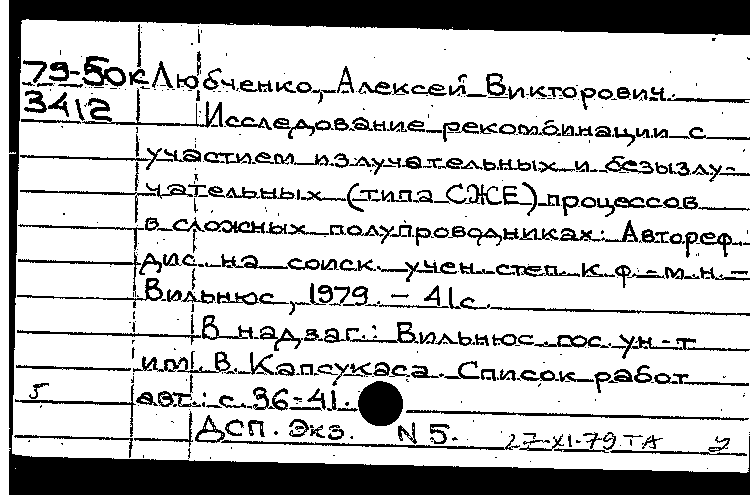 79-50к Любченко, Алексей Викторович.
3412 Исследование рекомбинации с
участием излучательных и безызлу-
чательных (типа СЖЕ) процессов
в сложных полупроводниках: Автореф.
дис. на соиск. учен. степ. к. ф.-м. н. –
Вильнюс, 1979. – 41с.
В надзаг.: Вильнюс. гос. ун-т
им. В. Капсукаса. Список работ
5 авт.: с. 36-41.
ДСП. Экз. N 5. 27-XI-79 ТА